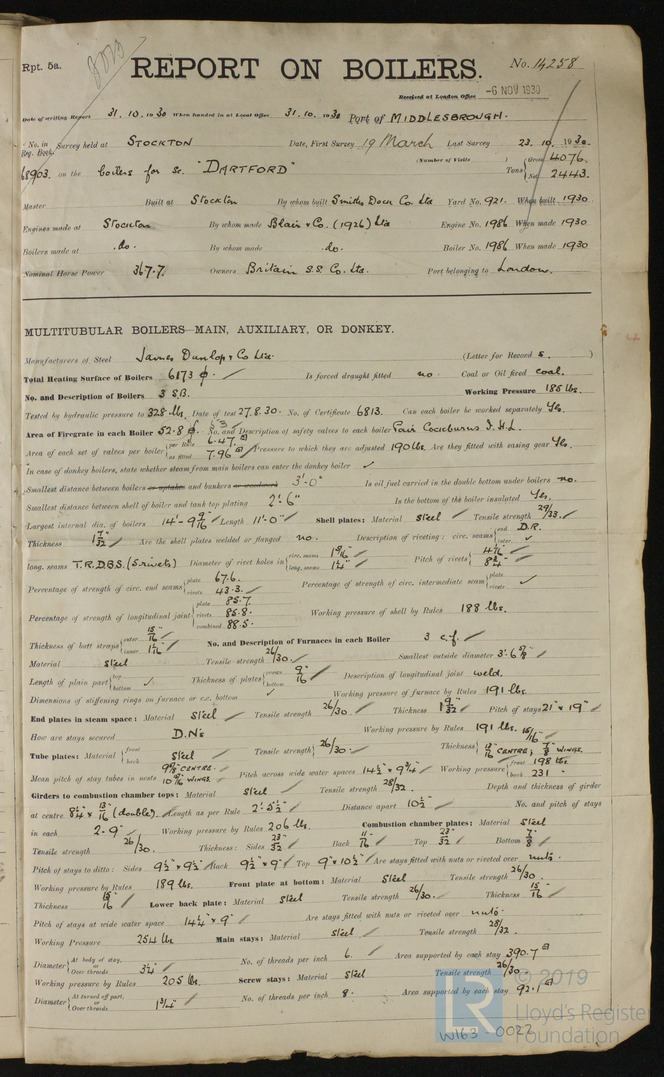 Rpt. 5a.
REPORT ON BOILERS.
No. 14258
Received at London Office -6 NOV 1930
Date of writing Report 31.10.1930 When handed in at Local Office 31.10.1930 Port of MIDDLESBROUGH.
No. in Reg. Book. Survey held at STOCKTON Date, First Survey 19 March Last Survey 23.10.1930.
(Number of Visits )
68903. on the boilers for sc. "DARTFORD" Tons { Gross 4076. Net 2443.
Master Built at Stockton By whom built Smiths Dock Co. Ltd Yard No. 921. When built 1930
Engines made at Stockton By whom made Blair & Co. (1926) Ltd Engine No. 1986 When made 1930
Boilers made at .do. By whom made .do. Boiler No. 1986 When made 1930
Nominal Horse Power 367.7. Owners Britain S.S. Co. Ltd. Port belonging to London.
MULTITUBULAR BOILERS—MAIN, AUXILIARY, OR DONKEY.
Manufacturers of Steel James Dunlop & Co Ltd. (Letter for Record S. )
Total Heating Surface of Boilers 6173 Is forced draught fitted no. Coal or Oil fired coal.
No. and Description of Boilers 3 S.B. Working Pressure 185 lbs.
Tested by hydraulic pressure to 328 lbs. Date of test 27.8.30. No. of Certificate 6813. Can each boiler be worked separately Yes.
Area of Firegrate in each Boiler 52.8 No. and Description of safety valves to each boiler Pair Cockburns I.H.L.
Area of each set of valves per boiler { per Rule 6.47 as fitted 7.96 Pressure to which they are adjusted 190 lbs. Are they fitted with easing gear Yes.
In case of donkey boilers, state whether steam from main boilers can enter the donkey boiler ✓
Smallest distance between boilers or uptakes and bunkers or woodwork 3'-0" Is oil fuel carried in the double bottom under boilers no.
Smallest distance between shell of boiler and tank top plating 2'-6" Is the bottom of the boiler insulated Yes.
Largest internal dia. of boilers 14'-9 9/16" Length 11'-0" Shell plates: Material Steel Tensile strength 29/33.
Thickness 1 7/32" Are the shell plates welded or flanged no. Description of riveting: circ. seams { end D.R. inter. ✓
long. seams T.R.D.B.S. (5 rivets) Diameter of rivet holes in { circ. seams 1 5/16" long. seams 1 1/4" Pitch of rivets { 4 1/16" 8 3/4"
Percentage of strength of circ. end seams { plate 67.6. rivets 43.3. Percentage of strength of circ. intermediate seam { plate rivets ✓
Percentage of strength of longitudinal joint { plate 85.7. rivets 85.8. combined 88.5. Working pressure of shell by Rules 188 lbs.
Thickness of butt straps { outer 15/16" inner 1 1/16" No. and Description of Furnaces in each Boiler 3 c.f.
Material Steel Tensile strength 26/30. Smallest outside diameter 3'-6 5/8"
Length of plain part { top bottom ✓ Thickness of plates { crown bottom 9/16" Description of longitudinal joint weld.
Dimensions of stiffening rings on furnace or c.c. bottom ✓ Working pressure of furnace by Rules 191 lbs.
End plates in steam space: Material Steel Tensile strength 26/30. Thickness 1 9/32" Pitch of stays 21" x 19"
How are stays secured D.N's Working pressure by Rules 191 lbs.
Tube plates: Material { front back Steel Tensile strength { 26/30. Thickness { 15/16" 13/16" CENTRE; 7/8" WINGS.
Mean pitch of stay tubes in nests 9 5/8" CENTRE. 10 9/16" WINGS. Pitch across wide water spaces 14 1/2" x 9 3/4" Working pressure { front 198 lbs. back 231
Girders to combustion chamber tops: Material Steel Tensile strength 28/32. Depth and thickness of girder
at centre 8 1/4" x 13/16" (double) Length as per Rule 2'-5 1/2" Distance apart 10 1/2" No. and pitch of stays
in each 2-9" Working pressure by Rules 206 lbs. Combustion chamber plates: Material Steel
Tensile strength 26/30. Thickness: Sides 23/32" Back 11/16" Top 23/32" Bottom 7/8"
Pitch of stays to ditto: Sides 9 1/2" x 9 1/2" Back 9 1/2" x 9" Top 9" x 10 1/2" Are stays fitted with nuts or riveted over nuts.
Working pressure by Rules 189 lbs. Front plate at bottom: Material Steel Tensile strength 26/30.
Thickness 15/16" Lower back plate: Material Steel Tensile strength 26/30. Thickness 15/16"
Pitch of stays at wide water space 14 1/4" x 9" Are stays fitted with nuts or riveted over nuts.
Working Pressure 254 lbs Main stays: Material Steel Tensile strength 28/32.
Diameter { At body of stay, or Over threads 3 1/4" No. of threads per inch 6. Area supported by each stay 390.7
Working pressure by Rules 205 lbs. Screw stays: Material Steel Tensile strength 26/30
Diameter { At turned off part, or Over threads. 1 3/4" No. of threads per inch 8. Area supported by each stay 92.1
© 2019
Lloyd's Register
Foundation
W163-0022